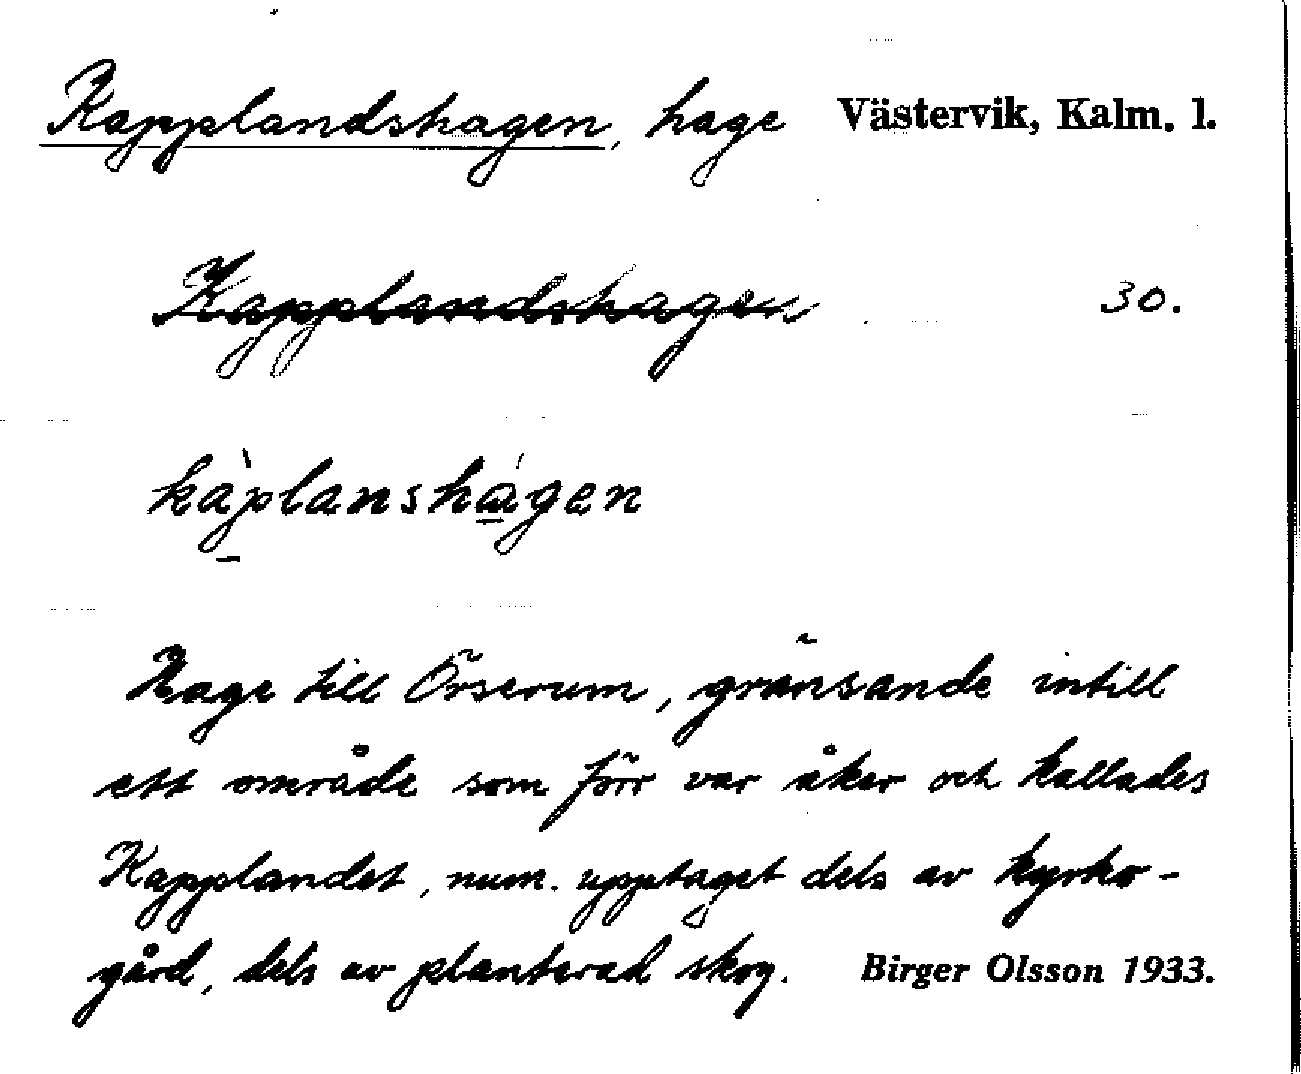 Kapplandshagen, hage Västervik, Kalm. l.
Kapplandshagen 30.
kàplanshágen
Hage till Örserum, gränsande intill
ett område som förr var åker och kallades
Kapplandet, num. upptaget dels av kyrko-
gård, dels av planterad skog. Birger Olsson 1933.